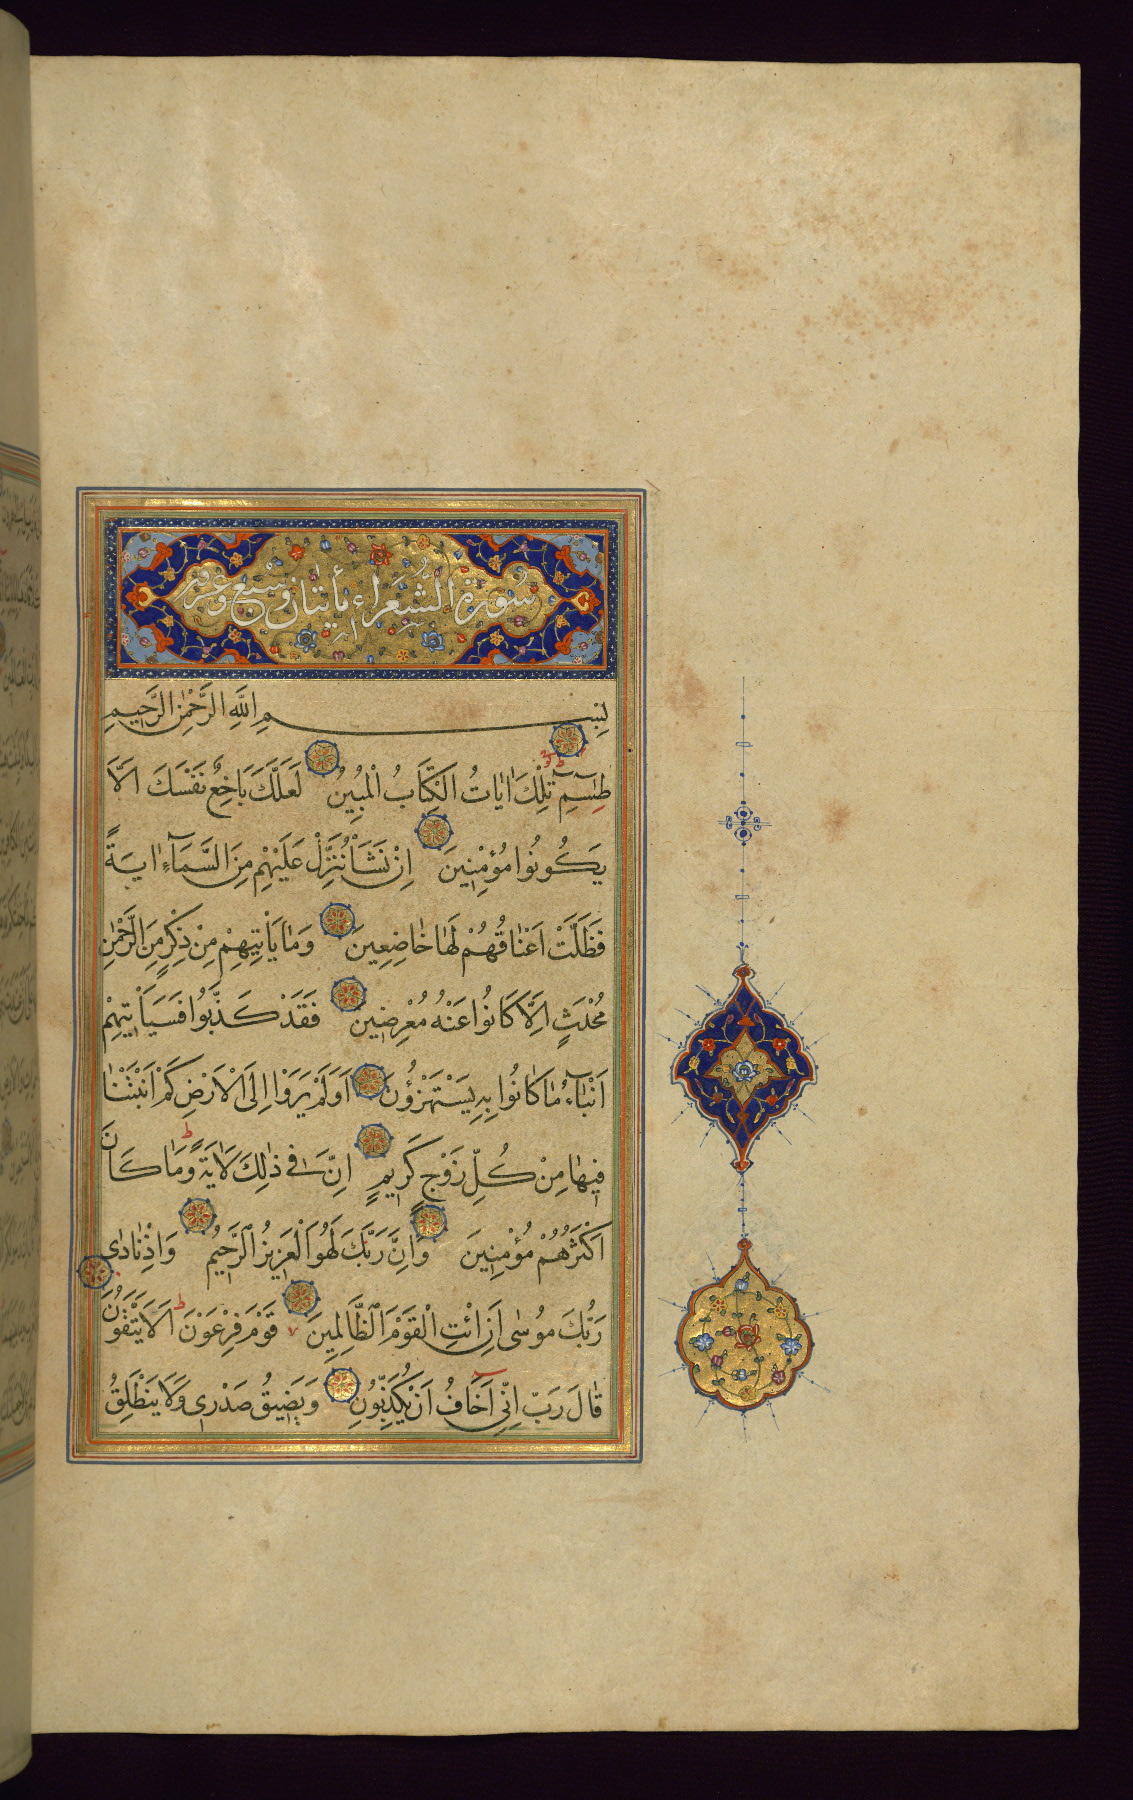 سورة الشعراء مأيتان وسبع وعشرون
بِسْمِ اللَّهِ الرَّحْمٰنِ الرَّحِيمِ
طٰسٓمٓ تِلْكَ اٰيَاتُ الْكِتَابِ الْمُبِينِ لَعَلَّكَ بَاخِعٌ نَفْسَكَ اَلَّا
يَكُونُوا مُؤْمِنِينَ اِنْ نَشَأْ نُنَزِّلْ عَلَيْهِمْ مِنَ السَّمَآءِ اٰيَةً
فَظَلَّتْ اَعْنَاقُهُمْ لَهَا خَاضِعِينَ وَمَا يَأْتِيهِمْ مِنْ ذِكْرٍ مِنَ الرَّحْمٰنِ
مُحْدَثٍ اِلَّا كَانُوا عَنْهُ مُعْرِضِينَ فَقَدْ كَذَّبُوا فَسَيَأْتِيهِمْ
اَنْبَآءُ مَا كَانُوا بِهِ يَسْتَهْزِؤُنَ اَوَلَمْ يَرَوْا اِلَى الْاَرْضِ كَمْ اَنْبَتْنَا
فِيهَا مِنْ كُلِّ زَوْجٍ كَرِيمٍ اِنَّ فِي ذٰلِكَ لَاٰيَةً وَمَا كَانَ
اَكْثَرُهُمْ مُؤْمِنِينَ وَاِنَّ رَبَّكَ لَهُوَ الْعَزِيزُ الرَّحِيمُ وَاِذْ نَادٰى
رَبُّكَ مُوسٰى اَنِ ائْتِ الْقَوْمَ الظَّالِمِينَ قَوْمَ فِرْعَوْنَ اَلَا يَتَّقُونَ
قَالَ رَبِّ اِنِّي اَخَافُ اَنْ يُكَذِّبُونِ وَيَضِيقُ صَدْرِي وَلَا يَنْطَلِقُ